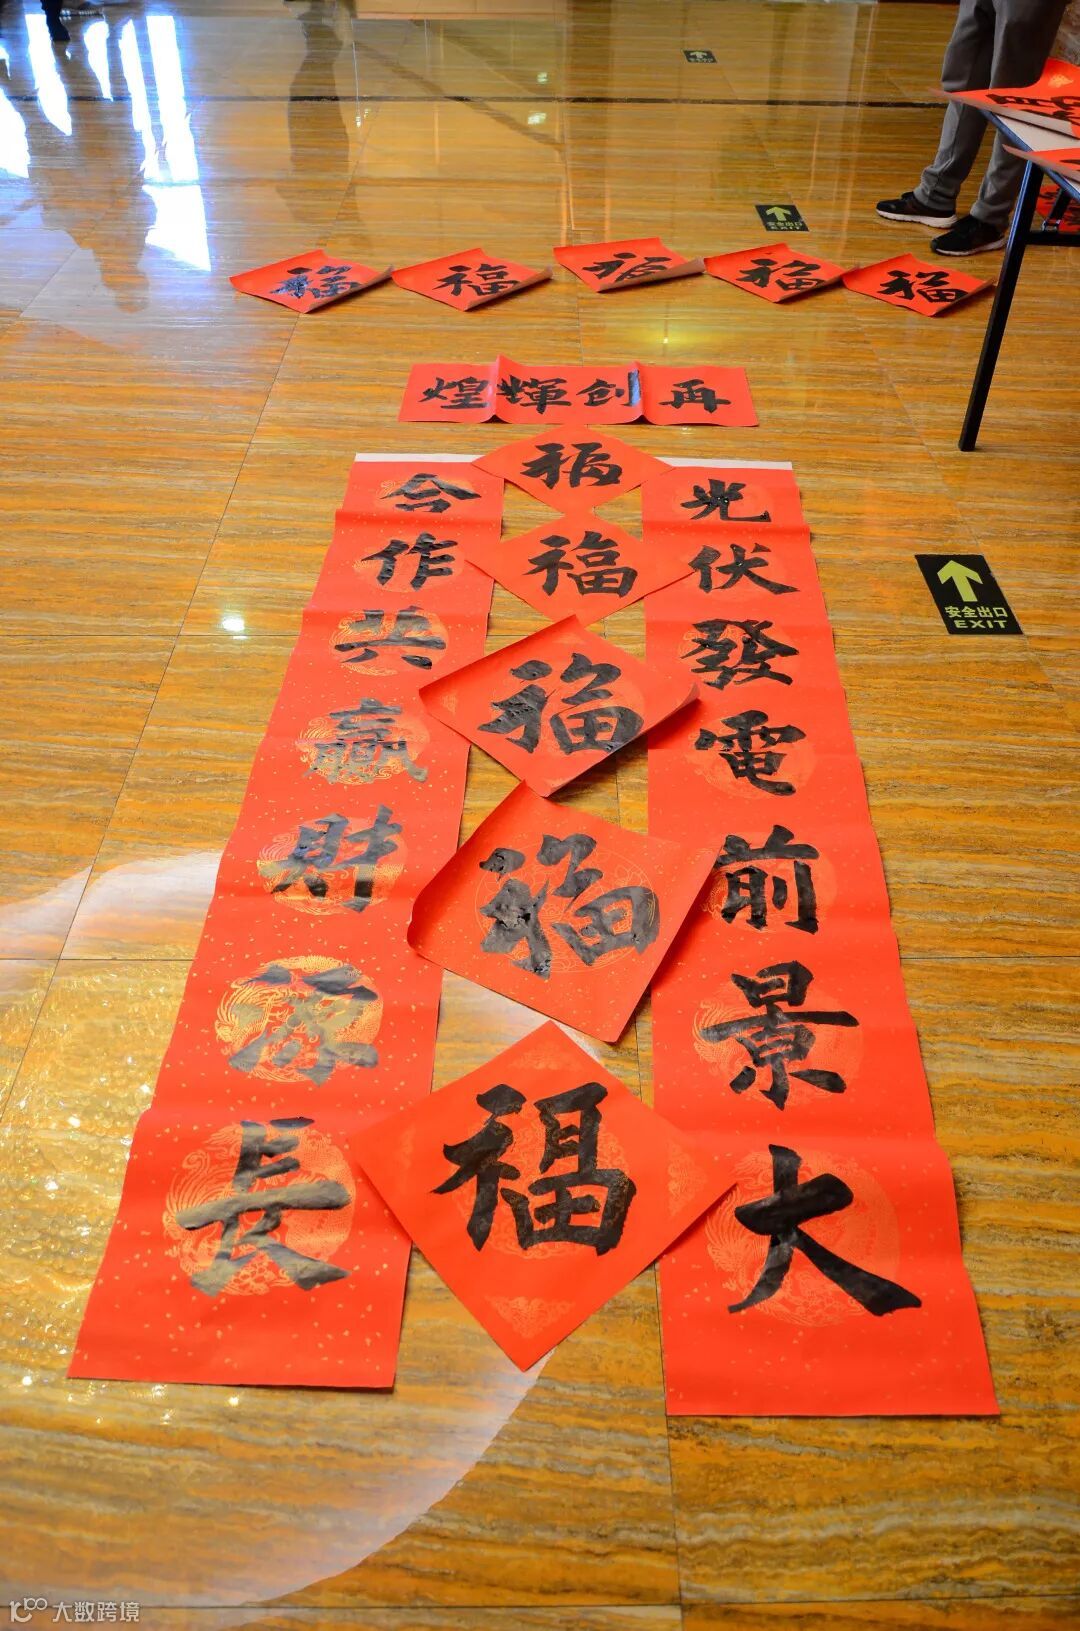 福
福
福
福
福
再创輝煌
光伏發電前景大
合作共贏財源長
福
福
福
福
福
安全出口
EXIT
安全出口
EXIT
大数跨境